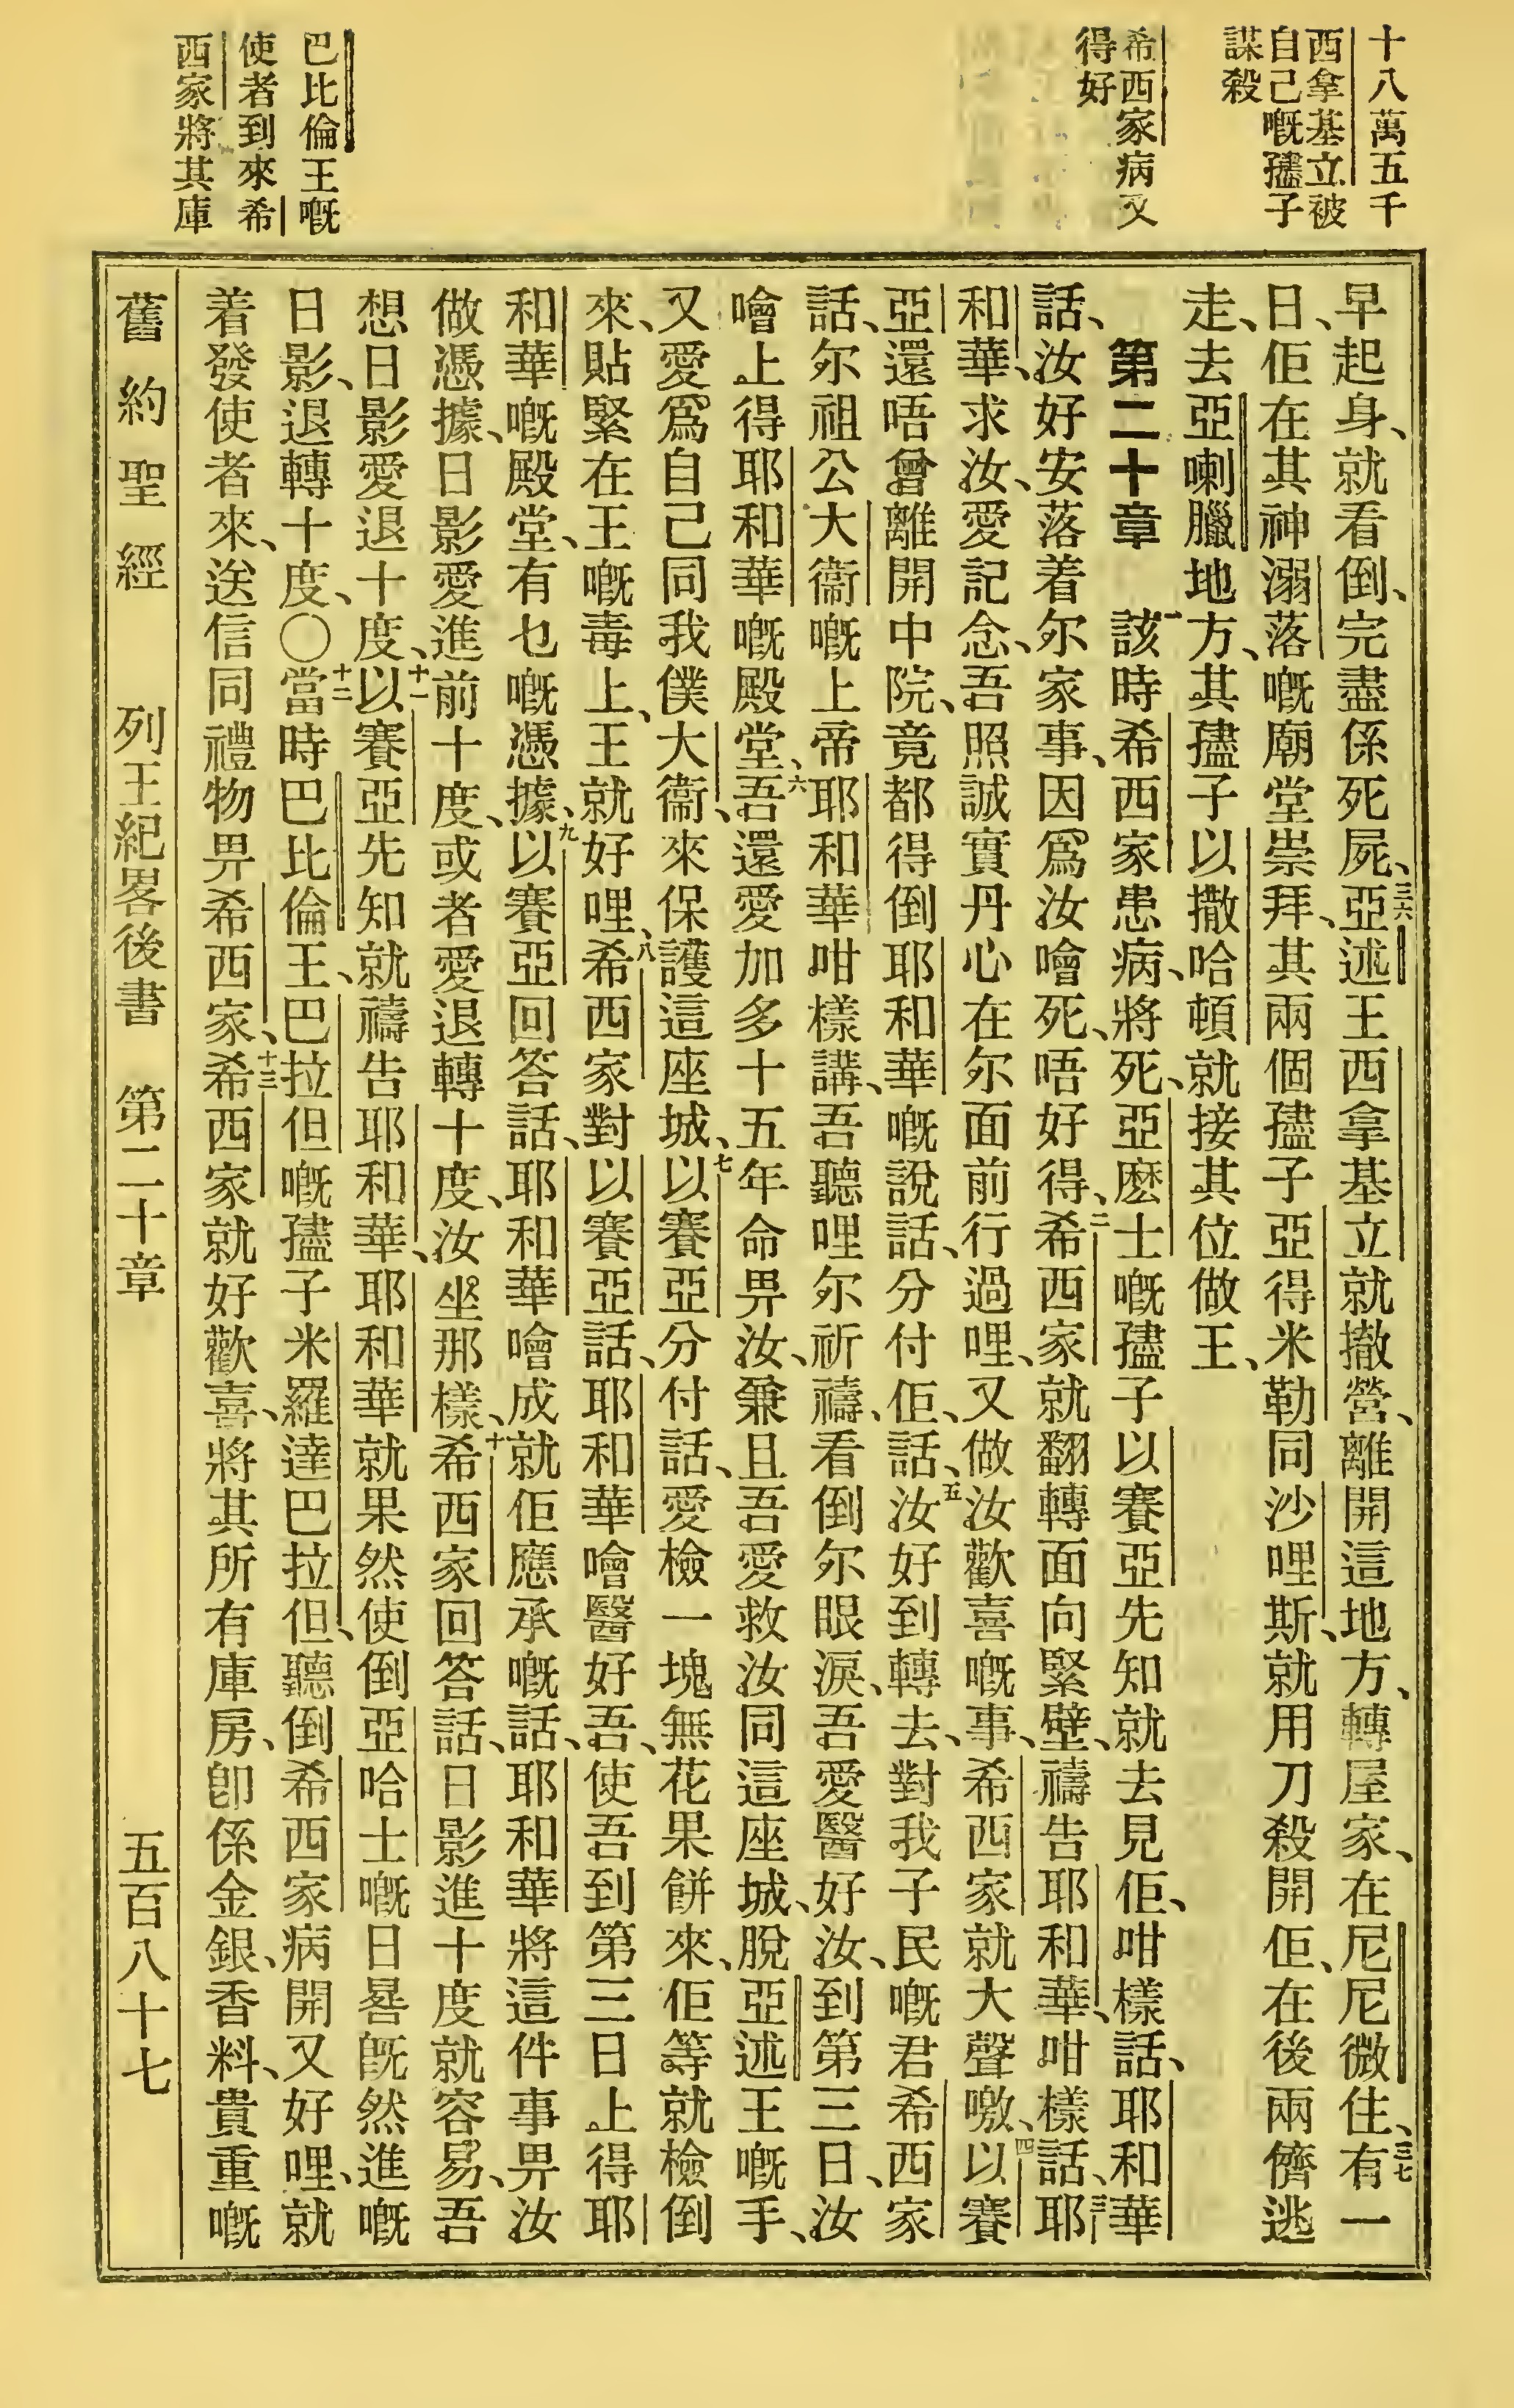 十八萬五千
西拿基立被
自己嘅孻子
謀殺
希西家病又
得好
巴比倫王嘅
使者到來希
西家將其庫
早起身、就看倒、完盡係死屍、三六亞述王西拿基立就撤營、離開這地方、轉屋家、在尼尼微住、三七有一
日、佢在其神溺落嘅廟堂崇拜、其兩個孻子亞得米勒同沙哩斯、就用刀殺開佢、在後兩儕逃
走、去亞喇臘地方、其孻子以撒哈頓就接其位做王、
第二十章 一該時希西家患病、將死、亞麽士嘅孻子以賽亞先知就去見佢、咁樣話、耶和華
話、汝好安落着尔家事、因爲汝噲死、唔好得、二希西家就翻轉面向緊壁、禱告耶和華、咁樣話、三耶
和華、求汝、愛記念、吾照誠實丹心在尔面前行過哩、又做汝歡喜嘅事、希西家就大聲噭、四以賽
亞還唔曾離開中院、竟都得倒耶和華嘅說話、分付佢、話、五汝好到轉去、對我子民嘅君希西家
話、尔祖公大衞嘅上帝耶和華咁樣講、吾聽哩尔祈禱、看倒尔眼淚、吾愛醫好汝、到第三日、汝
噲上得耶和華嘅殿堂、六吾還愛加多十五年命畀汝、兼且吾愛救汝同這座城、脫亞述王嘅手、
又愛爲自己同我僕大衞、來保護這座城、七以賽亞分付話、愛檢一塊無花果餅來、佢等就檢倒
來、貼緊在王嘅毒上、王就好哩、八希西家對以賽亞話、耶和華噲醫好吾、使吾到第三日上得耶
和華嘅殿堂、有乜嘅憑據、九以賽亞回答話、耶和華噲成就佢應承嘅話、耶和華將這件事畀汝
做憑據、日影愛進前十度、或者愛退轉十度、汝坐那樣、十希西家回答話、日影進十度就容易、吾
想日影愛退十度、十一以賽亞先知就禱告耶和華、耶和華就果然使倒亞哈士嘅日晷旣然進嘅
日影、退轉十度、〇十二當時巴比倫王、巴拉但嘅孻子米羅達巴拉但、聽倒希西家病開又好哩、就
着發使者來、送信同禮物畀希西家、十三希西家就好歡喜、將其所有庫房、卽係金銀、香料、貴重嘅
舊約聖經 列王紀畧後書 第二十章 五百八十七